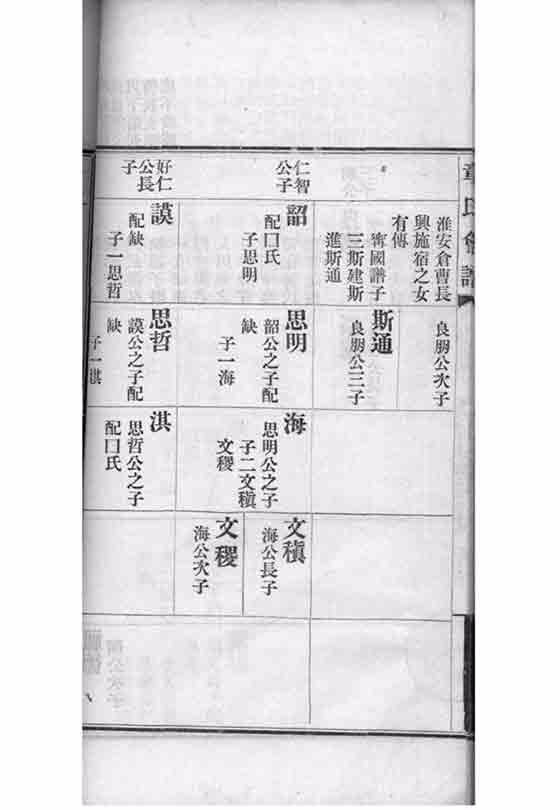 章氏會譜
淮安倉曹長
興施宿之女
有傳
甯國譜子
三斯建斯
進斯通
良朋公次子
斯通
良朋公三子
仁智
公子
韶
配囗氏
子思明
思明
韶公之子配
缺
子一海
海
思明公之子
子二文稹
文稷
文稹
海公長子
文稷
海公次子
好仁
公長
子
謨
配缺
子一思哲
思哲
謨公之子配
缺
子一淇
淇
思哲公之子
配囗氏
八